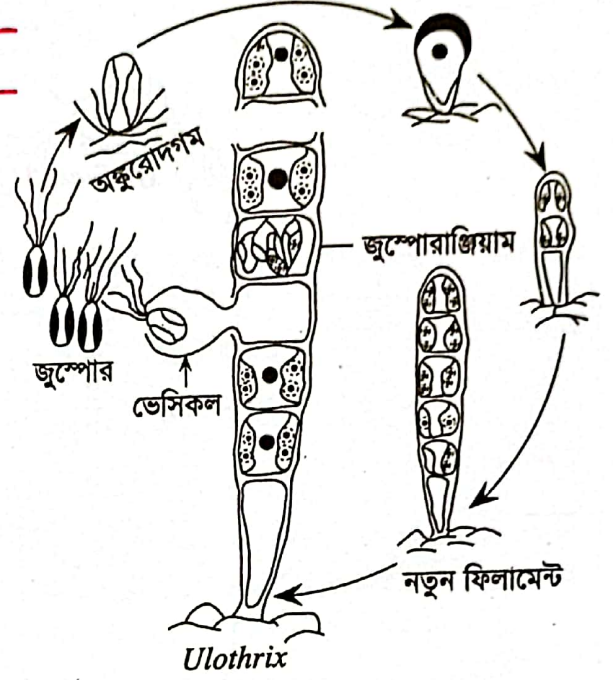 অঙ্কুরোদগম
জুস্পোরাঞ্জিয়াম
জুস্পোর
ভেসিকল
নতুন ফিলামেন্ট
Ulothrix